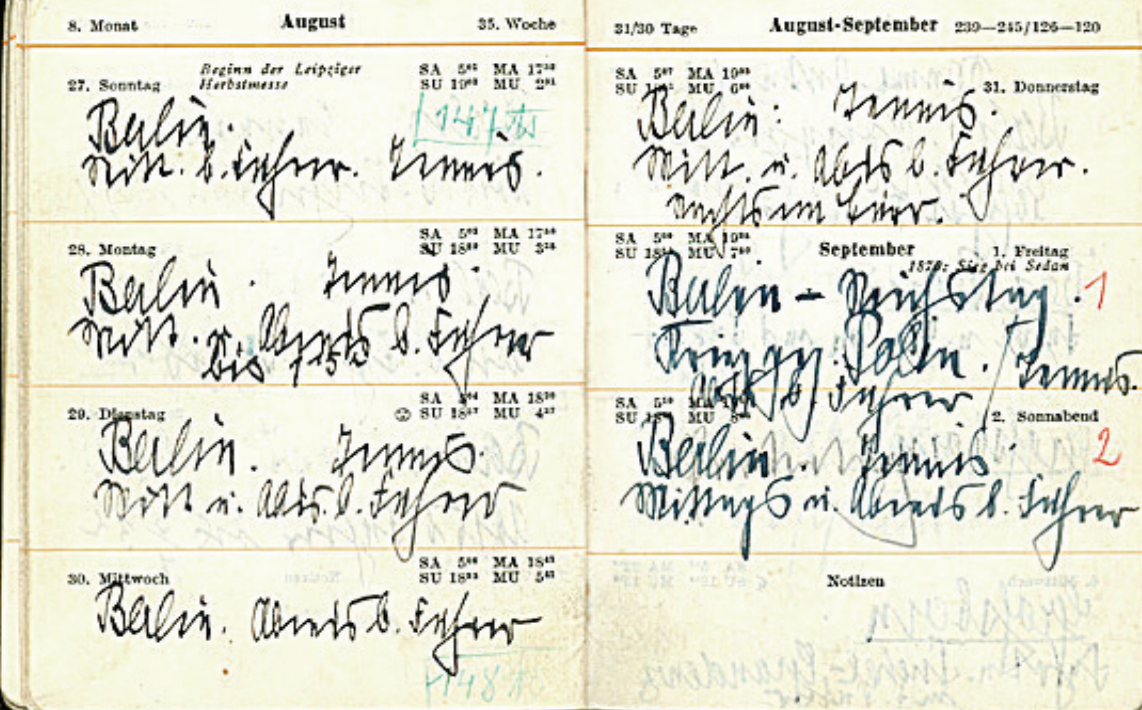 8. Monat August 35. Woche
27. Sonntag Beginn der Leipziger Herbstmesse
SA 5 MA 17
SU 19 MU 2
147
Berlin.
Mitt. b. Führer. Tennis.
28. Montag
SA 5 MA 17
SU 18 MU 3
Berlin. Tennis.
Mitt. u. Abends b. Führer
bis
29. Dienstag
SA MA 18
SU 18 MU 4
Berlin. Tennis.
Mitt u. Abds. b. Führer
30. Mittwoch
SA 5 MA 18
SU 18 MU 5
Berlin. Abends b. Führer
148
31/30 Tage August-September 239—245/126—120
SA 5 MA 19
SU MU 6
31. Donnerstag
Berlin: Tennis.
Mitt. u. Abds b. Führer.
nachts im Büro.
SA 5 MA 19
SU 18 MU 7
September 1. Freitag
1870: Sieg bei Sedan
Berlin – Reichstag. 1
Krieg gg. Polen. Tennis.
Abds b. Führer
SA 5
SU MU
2. Sonnabend
Berlin. Tennis 2
Mittags u. Abends b. Führer
Notizen